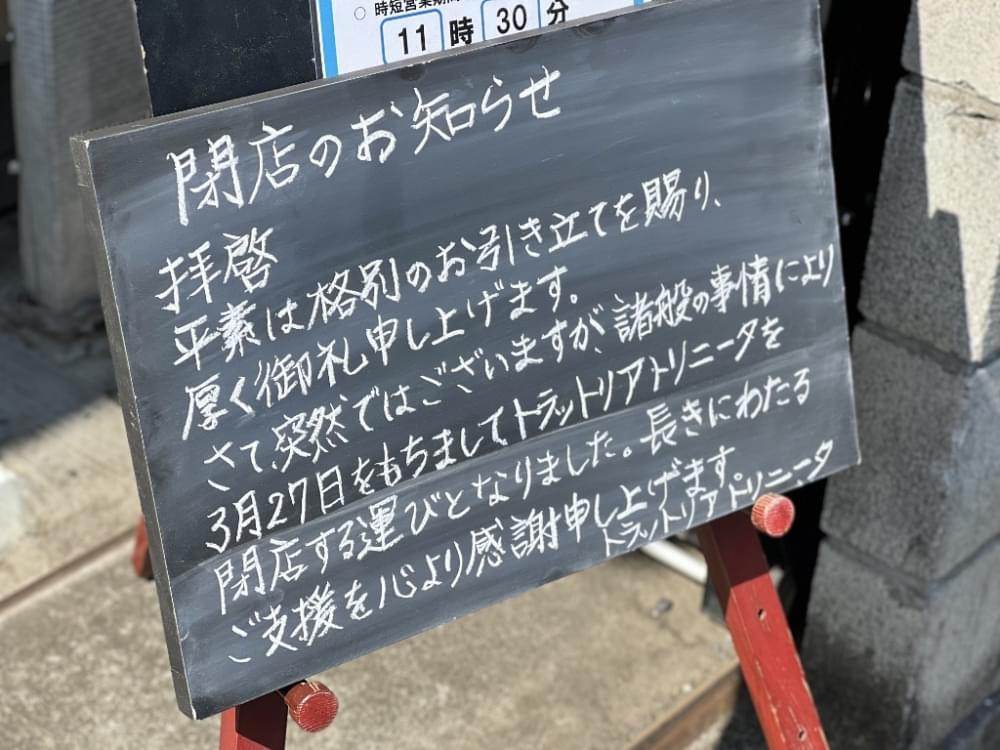 ○ 時短営業期間
11時30分
閉店のお知らせ
拝啓
平素は格別のお引き立てを賜り、
厚く御礼申し上げます。
さて、突然ではございますが、諸般の事情により
3月27日をもちましてトラットリアトリニータを
閉店する運びとなりました。長きにわたる
ご支援を心より感謝申し上げます。
トラットリアトリニータ